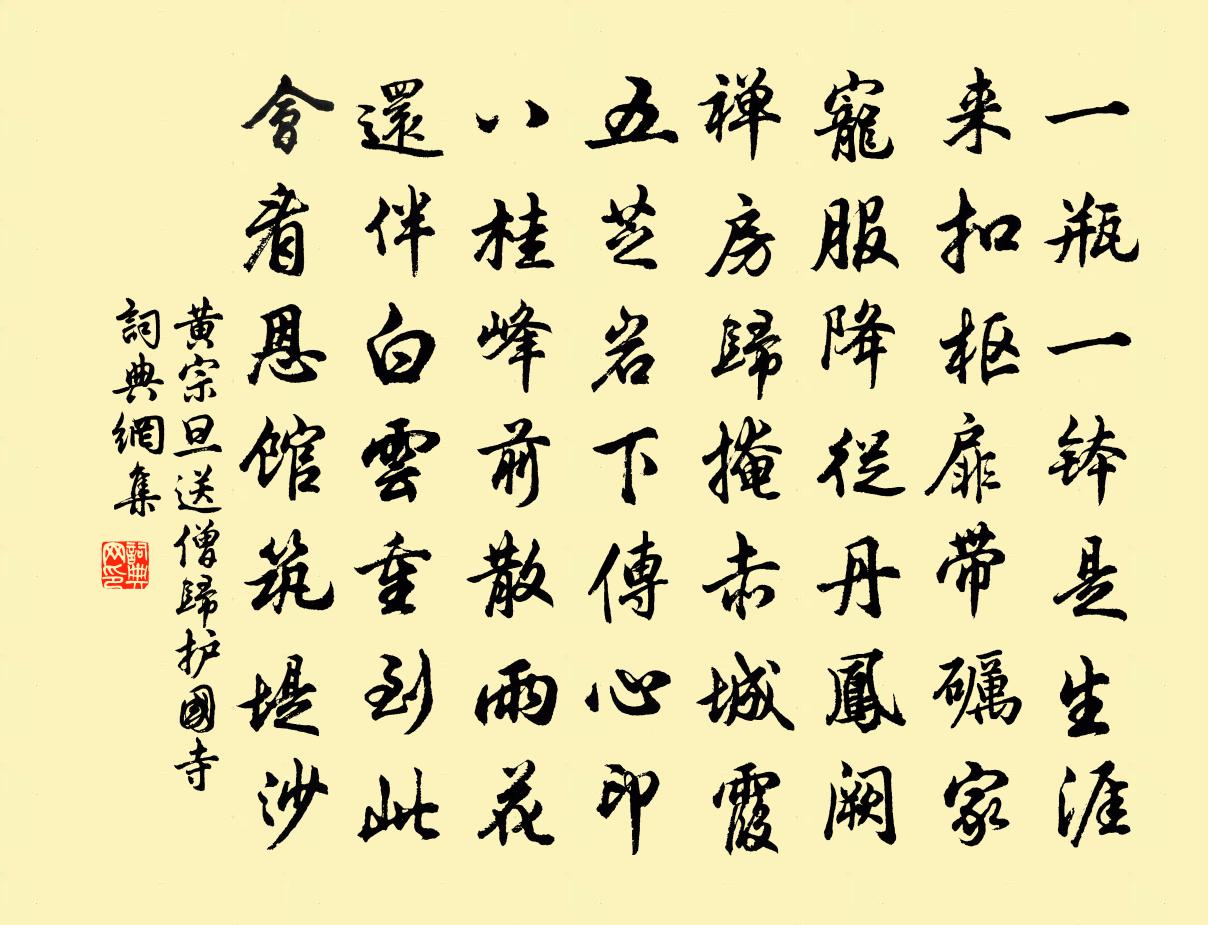 一瓶一钵是生涯
来扣枢扉带砺家
寵服降從丹鳳闕
禅房歸掩赤城霞
五芝岩下傳心印
八桂峰前散雨花
還伴白雲重到此
會看恩馆筑堤沙
黄宗旦送僧歸护國寺
詞典網集
詞典网印